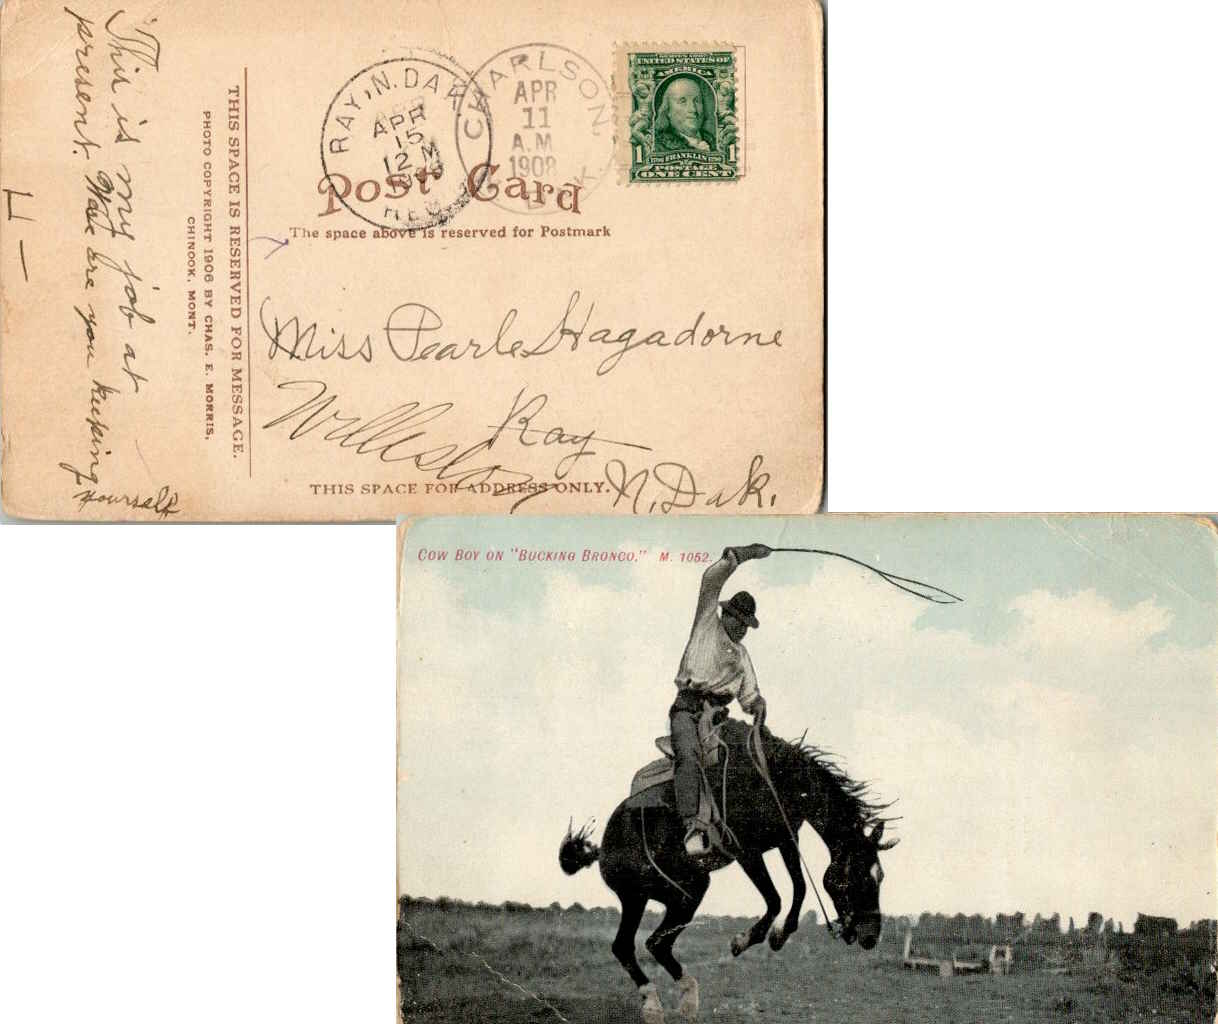 This is my job at
present. How are you keeping
yourself
H —
THIS SPACE IS RESERVED FOR MESSAGE.
PHOTO COPYRIGHT 1906 BY CHAS. E. MORRIS,
CHINOOK, MONT.
RAY, N. DAK.
APR
15
12 M
REC'D
CHARLSON,
APR
11
A.M.
1908
DAK.
UNITED STATES OF
AMERICA
1 1706 FRANKLIN 1790 1
POSTAGE
ONE CENT
Post Card
The space above is reserved for Postmark
Miss Pearle Hagadorne
Ray
Williston
N. Dak.
THIS SPACE FOR ADDRESS ONLY.
COW BOY ON "BUCKING BRONCO," M. 1052.